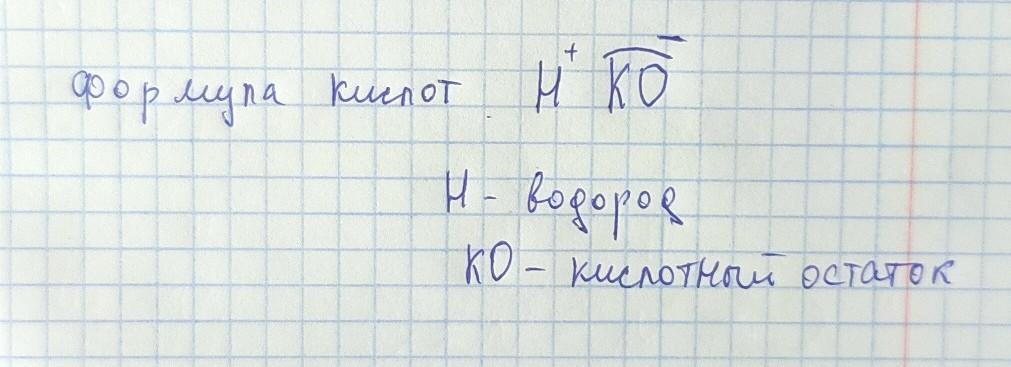 формула кислот H⁺ KO⁻
H - водород
KO - кислотный остаток